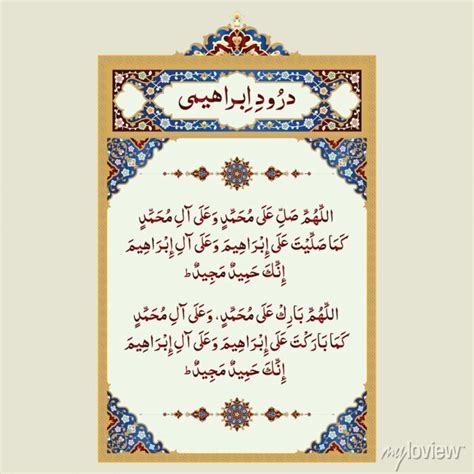 درُودِ اِبراهیمی
اللّٰهُمَّ صَلِّ عَلىٰ مُحَمَّدٍ وَعَلىٰ آلِ مُحَمَّدٍ
كَمَا صَلَّيْتَ عَلىٰ إِبْرَاهِيمَ وَعَلىٰ آلِ إِبْرَاهِيمَ
إِنَّكَ حَمِيدٌ مَجِيدٌ ؕ
اللّٰهُمَّ بَارِكْ عَلىٰ مُحَمَّدٍ، وَعَلىٰ آلِ مُحَمَّدٍ
كَمَا بَارَكْتَ عَلىٰ إِبْرَاهِيمَ وَعَلىٰ آلِ إِبْرَاهِيمَ
إِنَّكَ حَمِيدٌ مَجِيدٌ ؕ
myloview